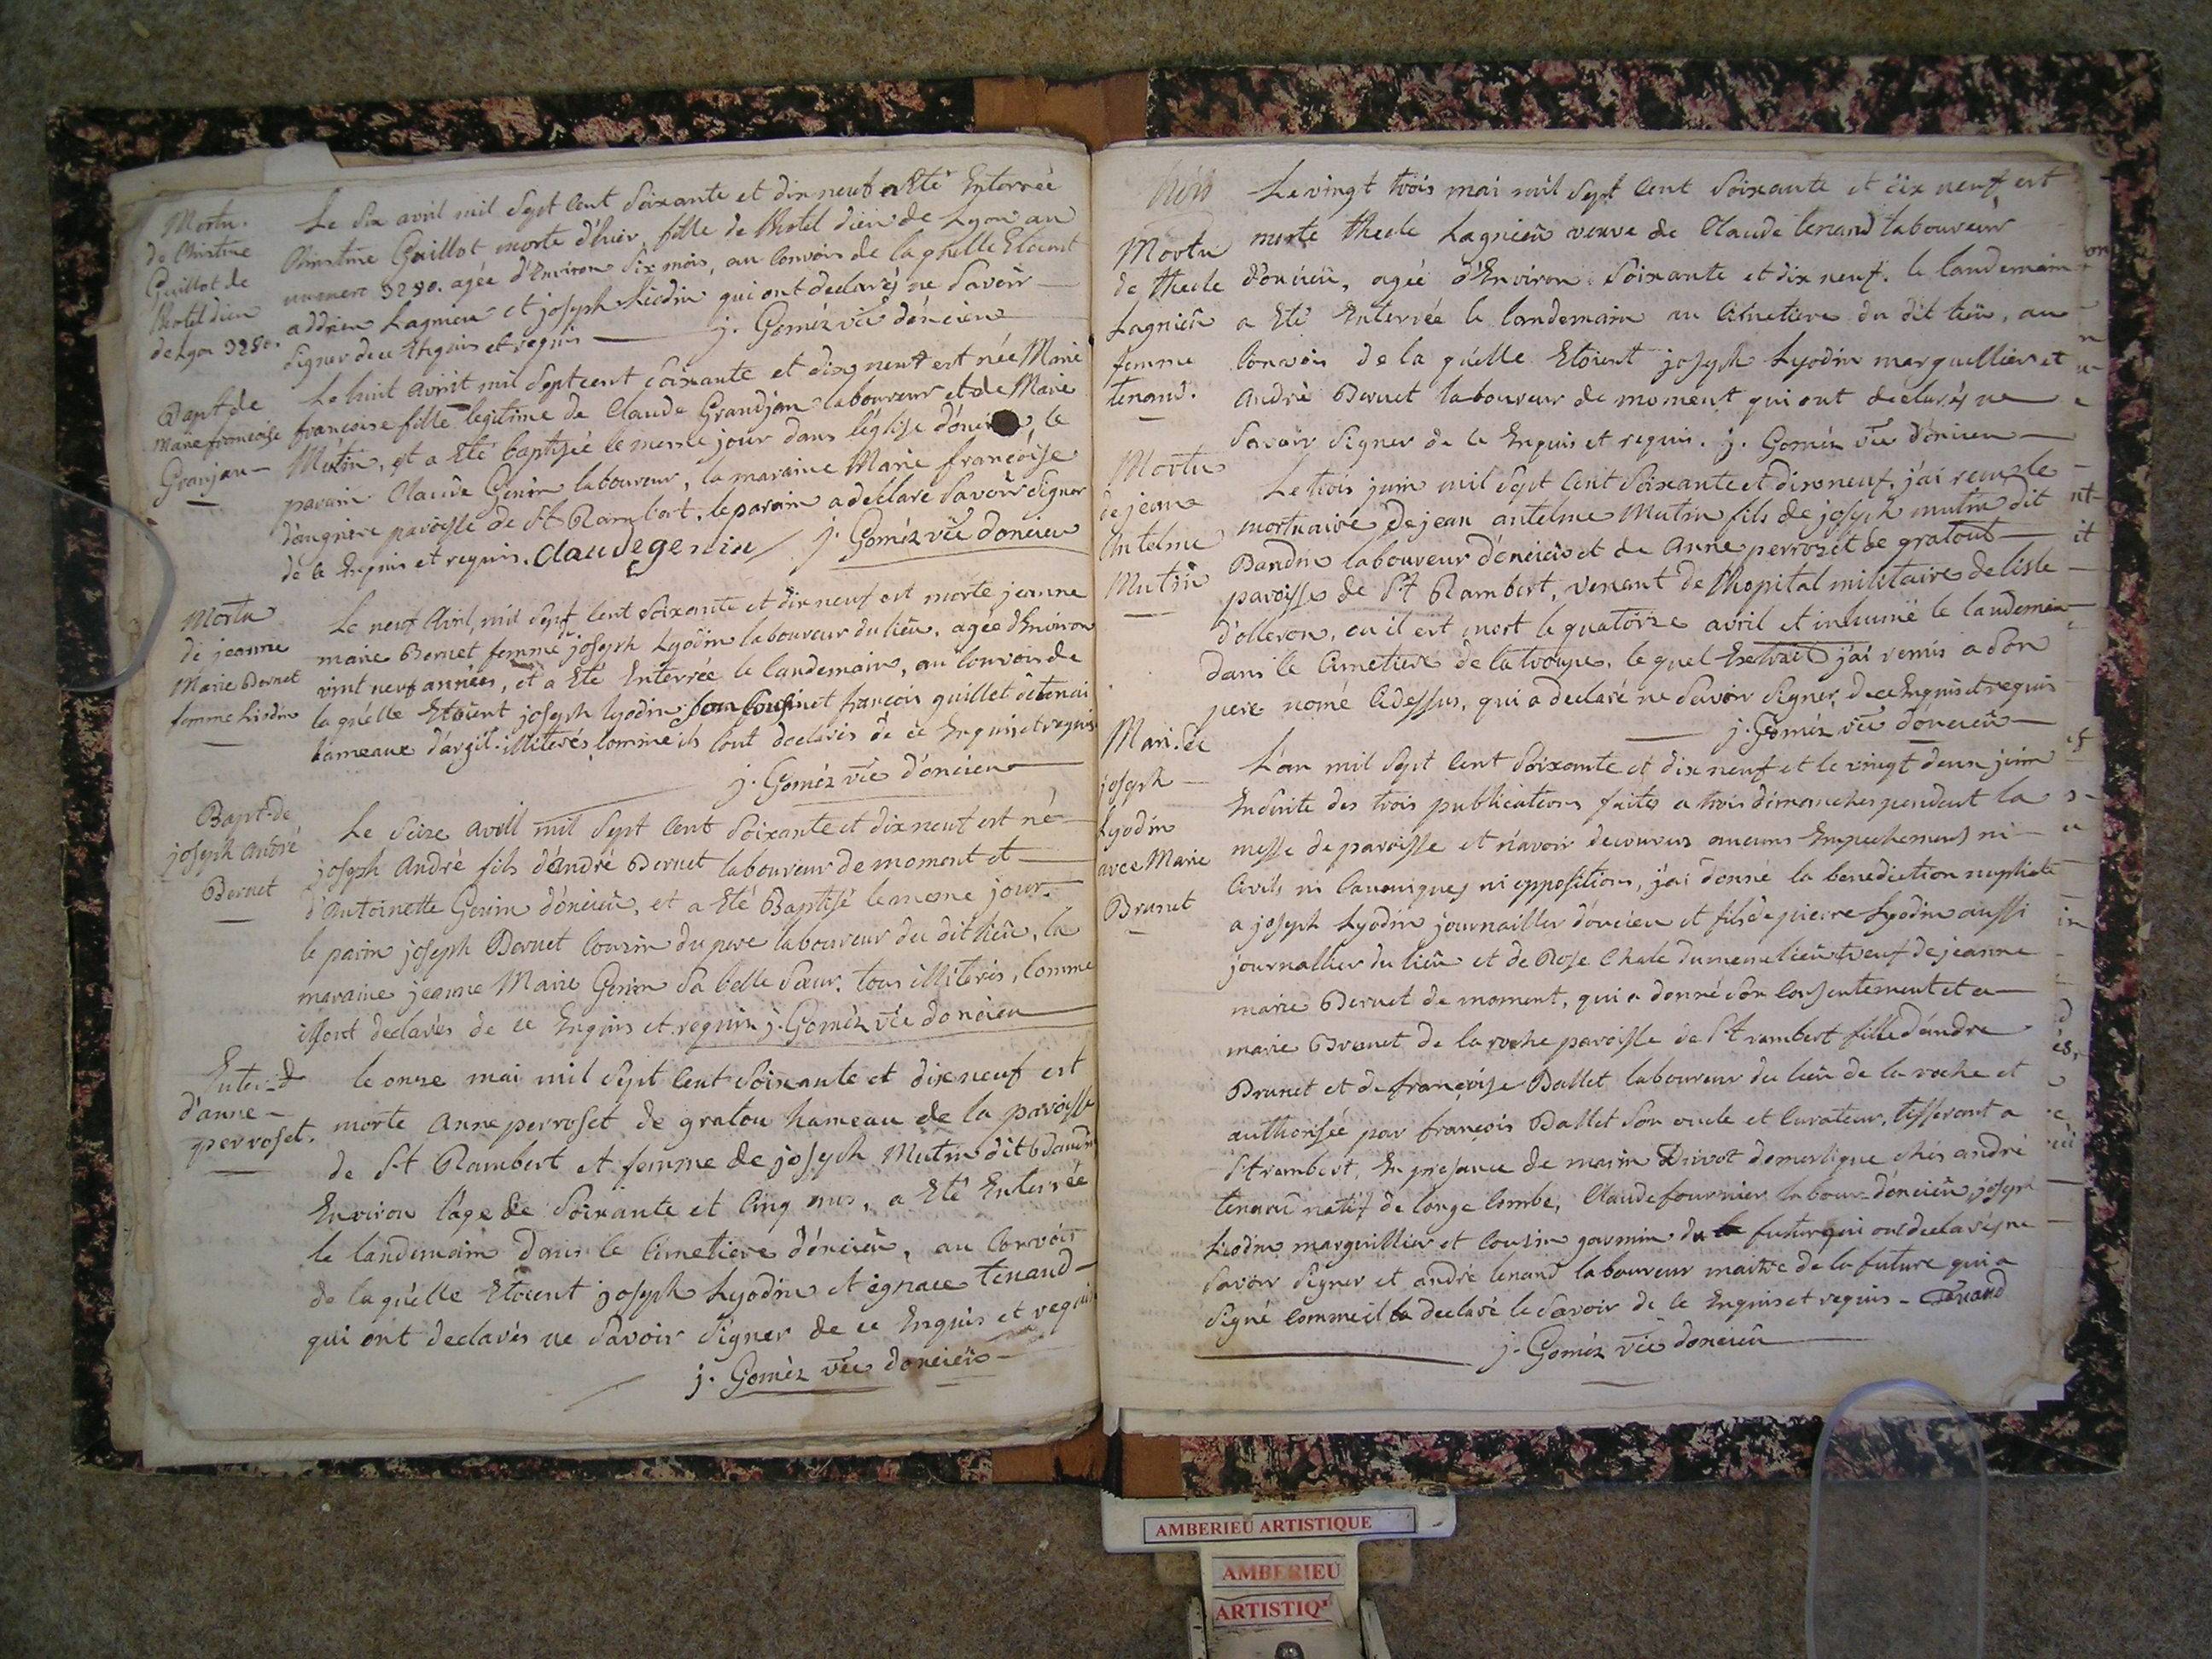 Mortu.
de Christine
Guillot de
l'hotel dieu
de Lyon 3280.
Le six avril mil sept cent soixante et dix neuf a Eté Enterrée
Christine Guillot, morte d'hier, fille de l'hotel dieu de Lyon au
numero 3280. agée d'Environ six mois, au convois de la quelle Etoient
addrien Lagnieu et joseph Liodin qui ont declarés ne savoir
signer de ce Enquis et requis — j. Goméz vic d'oncieu
Bapt de
Marie francoise
Granjan —
Le huit avril mil sept cent soixante et dix neuf est née Marie
francoise fille legitime de Claude Grandjan laboureur et de Marie
Mutin, et a Eté baptisée le meme jour dans l'église d'oncieu, le
parain Claude Genin laboureur, la maraine Marie françoise
d'angriere paroisse de St Rambert. le parain a declaré savoir signer
de ce Enquis et requis. Claude genin j. Goméz vic doncieu
Mortu
de jeanne
Marie Bernet
femme Liodin
Le neuf Avril, mil sept cent soixante et dix neuf est morte jeanne
marie Bernet femme joseph Lyodin laboureur du lieu, agée d'Environ
vint neuf années, et a Eté Enterrée le landemain, au convois de
la quelle Etoient joseph lyodin son cousin et françois guillet de tenai
hameaux d'argil. illiterés comme ils l'ont declarés de ce Enquis et requis
j. Goméz vic d'oncieu
Bapt. de
joseph andré
Bernet
Le seize avril mil sept cent soixante et dix neuf est né
joseph andré fils d'andré Bernet laboureur de moment et
d'Antoinette Genin d'oncieu, et a Eté Baptisé le meme jour.
le parin joseph Bernet cousin du pere laboureur du dit lieu, la
maraine jeanne Marie Genin sa belle sœur, tous illiterés, comme
ils ont declarés de ce Enquis et requis j. Goméz vic doncieu
Enter. d
d'anne —
perroset.
le onze mai mil sept cent soixante et dix neuf est
morte anne perroset de gratou hameau de la paroisse
de St Rambert et femme de joseph Mutin dit Bandin
Environ l'age de soixante et cinq ans, a Eté Enterrée
le landemain dans le Cimetiere d'oncieu, au convois
de la quelle Etoient joseph Lyodin et ignace tenand
qui ont declarés ne savoir signer de ce Enquis et requis
j. Goméz vic doncieu
Mortu
de thecle
Lagnieu
femme
tenand.
Le vingt trois mai mil sept cent soixante et dix neuf est
morte thecle Lagnieu veuve de Claude tenand laboureur
d'oncieu, agée d'Environ soixante et dix neuf. le landemain
a Eté Enterrée le landemain au Cimetiere du dit lieu, au
convois de la quelle Etoient joseph Lyodin marguellier et
andré Bernet laboureur de moment qui ont declarés ne
savoir signer de ce Enquis et requis. j. Goméz vic d'oncieu
Mortu
de jean
Antelme
Mutin
Le trois juin mil sept cent soixante et dix neuf, j'ai reçu le
mortuaire de jean antelme Mutin fils de joseph mutin dit
Bandin laboureur d'oncieu et de anne perrozet de gratout
paroisse de St Rambert, venant de l'hopital militaire de lisle
d'olleron, ou il est mort le quatorze avril et inhumé le landemin
dans le Cimetiere de la troupe, le quel Extrait j'ai remis a son
pere nomé cidessus, qui a declaré ne savoir signer, de ce Enquis et requis
j. Goméz vic d'oncieu
Mari. de
joseph
Lyodin
avec Marie
Brunet
L'an mil sept cent soixante et dix neuf et le vingt deux juin
Ensuite des trois publications faites a trois dimanches pendant la
messe de paroisse et n'avoir decouvers aucuns Empechemens ni
Civils ni Canoniques ni oppositions, j'ai donné la benediction nuptiale
a joseph Lyodin journaillier d'oncieu et fils de pierre Lyodin aussi
journallier du lieu et de Rose Chale du meme lieu veuf de jeanne
marie Bernet de moment, qui a donné son consentement et a
marie Brunet de la roche paroisse de St rambert fille d'andre
Brunet et de françoise Ballet laboureur du lieu de la roche et
authorisée par françois Ballet son oncle et curateur, tisserant a
St rambert. En presence de marin Divot domestique chés andré
tenand natif de longe combe, Claude fournier labour d'oncieu joseph
Liodin marguillier et cousin germin du futur qui ont declarés ne
savoir signer et andré tenand laboureur maitre de la future qui a
signé comme il la declaré le savoir de ce Enquis et requis — tenand
j. Goméz vic doncieu
AMBERIEU ARTISTIQUE
AMBERIEU
ARTISTIQ